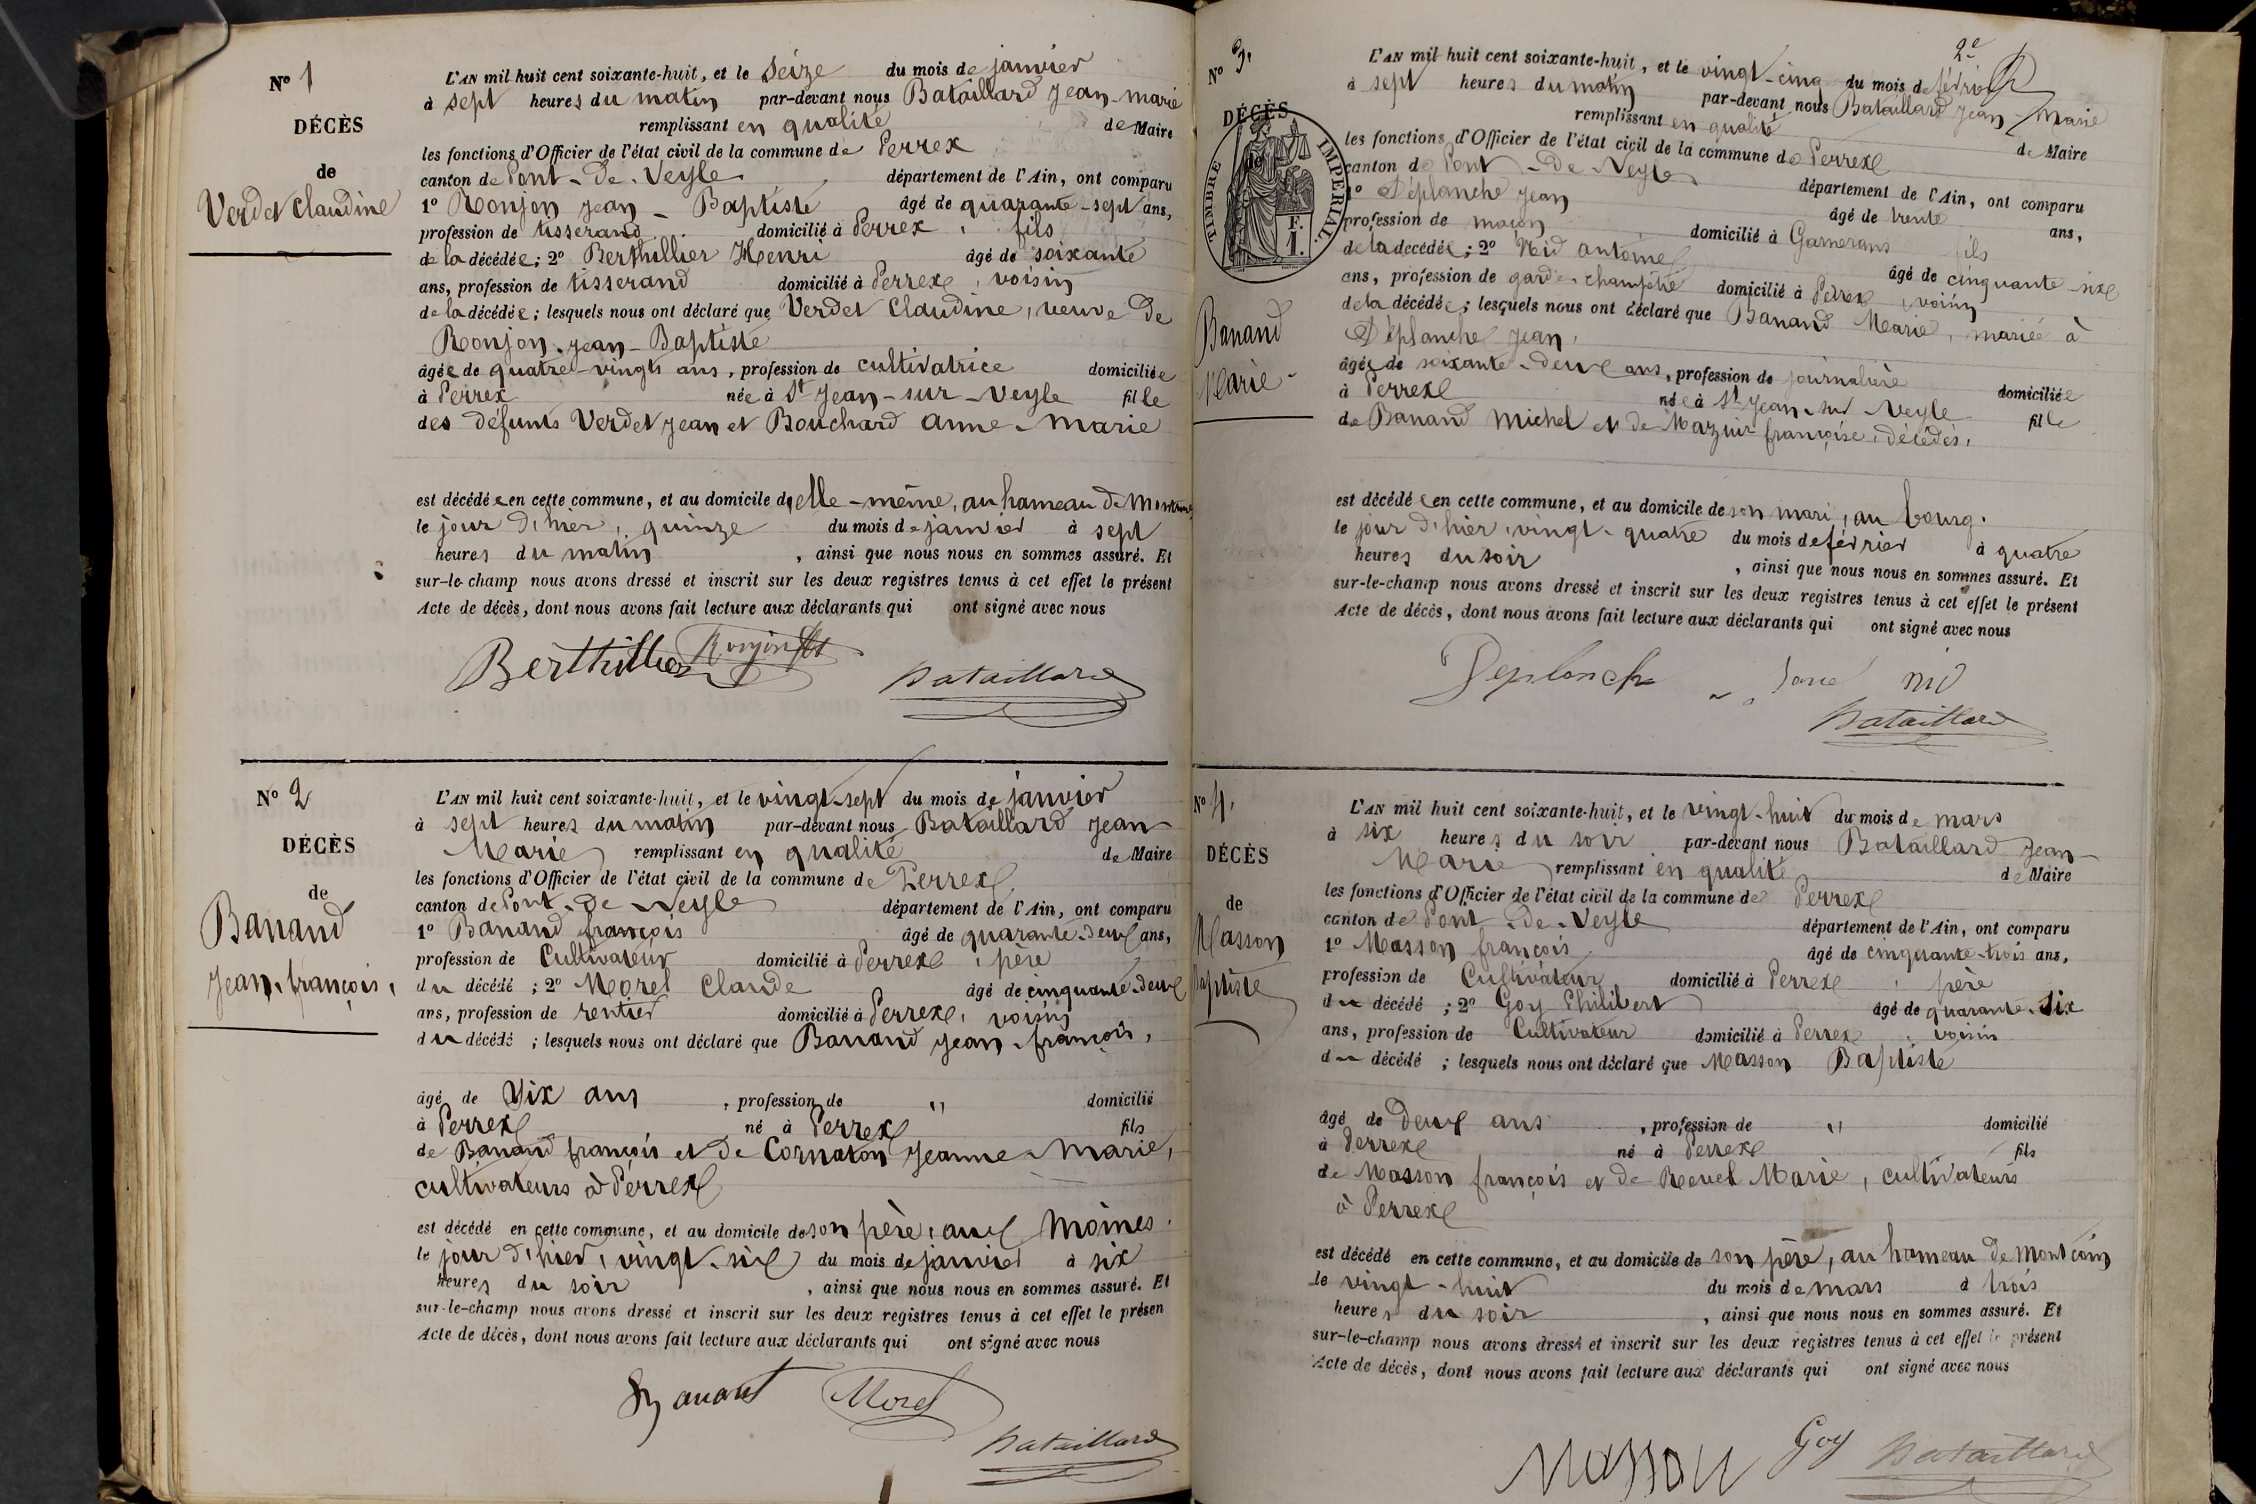 N° 1
DÉCÈS
de
Verdet Claudine
L'AN mil huit cent soixante-huit, et le seize du mois de janvier
à sept heures du matin par-devant nous Bataillard Jean-Marie
remplissant en qualité de Maire
les fonctions d'Officier de l'état civil de la commune de Perrex
canton de Pont-de-Veyle département de l'Ain, ont comparu
1° Ronjon Jean-Baptiste âgé de quarante-sept ans,
profession de tisserand domicilié à Perrex, fils
de la décédée; 2° Berthillier Henri âgé de soixante
ans, profession de tisserand domicilié à Perrex, voisin
de la décédée; lesquels nous ont déclaré que Verdet Claudine, veuve de
Ronjon Jean-Baptiste
âgée de quatre-vingts ans, profession de cultivatrice domiciliée
à Perrex née à St Jean-sur-Veyle fille
des défunts Verdet Jean et Bouchard Anne-Marie
est décédée en cette commune, et au domicile d'elle-même, au hameau de
le jour d'hier, quinze du mois de janvier à sept
heures du matin, ainsi que nous nous en sommes assuré. Et
sur-le-champ nous avons dressé et inscrit sur les deux registres tenus à cet effet le présent
Acte de décès, dont nous avons fait lecture aux déclarants qui ont signé avec nous
Berthillier Ronjon Bataillard
N° 2
DÉCÈS
de
Banand
Jean-françois.
L'AN mil huit cent soixante-huit, et le vingt-sept du mois de janvier
à sept heures du matin par-devant nous Bataillard Jean-
Marie remplissant en qualité de Maire
les fonctions d'Officier de l'état civil de la commune de Perrex
canton de Pont-de-Veyle département de l'Ain, ont comparu
1° Banand françois âgé de quarante-deux ans,
profession de Cultivateur domicilié à Perrex, père
du décédé; 2° Morel Claude âgé de cinquante-deux
ans, profession de rentier domicilié à Perrex, voisin
du décédé; lesquels nous ont déclaré que Banand Jean-françois,
âgé de dix ans, profession de " domicilié
à Perrex né à Perrex fils
de Banand françois et de Cornaton Jeanne-Marie,
cultivateurs à Perrex
est décédé en cette commune, et au domicile de son père, aux Moines.
le jour d'hier, vingt-six du mois de janvier à six
heures du soir, ainsi que nous nous en sommes assuré. Et
sur-le-champ nous avons dressé et inscrit sur les deux registres tenus à cet effet le présen
Acte de décès, dont nous avons fait lecture aux déclarants qui ont signé avec nous
Banand Morel
Bataillard
2e
N° 3.
DÉCÈS
de
TIMBRE IMPERIAL
F.
1.
Banand
Marie-
L'AN mil huit cent soixante-huit, et le vingt-cinq du mois de février
à sept heures du matin par-devant nous Bataillard Jean-Marie
remplissant en qualité de Maire
les fonctions d'Officier de l'état civil de la commune de Perrex
canton de Pont-de-Veyle département de l'Ain, ont comparu
1° Déplanche Jean âgé de trente ans,
profession de maçon domicilié à Garnerans fils
de la décédée; 2° Nid Antoine âgé de cinquante-six
ans, profession de garde-champêtre domicilié à Perrex, voisin
de la décédée; lesquels nous ont déclaré que Banand Marie, mariée à
Déplanche Jean,
âgée de soixante-deux ans, profession de journalière domiciliée
à Perrex née à St Jean-sur-Veyle fille
de Banand Michel et de Mazuir françoise, décédés,
est décédée en cette commune, et au domicile de son mari, au bourg.
le jour d'hier, vingt-quatre du mois de février à quatre
heures du soir, ainsi que nous nous en sommes assuré. Et
sur-le-champ nous avons dressé et inscrit sur les deux registres tenus à cet effet le présent
Acte de décès, dont nous avons fait lecture aux déclarants qui ont signé avec nous
Deplanche nid
Bataillard
N° 4.
DÉCÈS
de
Masson
Baptiste
L'AN mil huit cent soixante-huit, et le vingt-huit du mois de mars
à six heures du soir par-devant nous Bataillard Jean-
Marie remplissant en qualité de Maire
les fonctions d'Officier de l'état civil de la commune de Perrex
canton de Pont-de-Veyle département de l'Ain, ont comparu
1° Masson françois âgé de cinquante-trois ans,
profession de Cultivateur domicilié à Perrex, père
du décédé; 2° Goy Philibert âgé de quarante-six
ans, profession de Cultivateur domicilié à Perrex, voisin
du décédé; lesquels nous ont déclaré que Masson Baptiste
âgé de deux ans, profession de " domicilié
à Perrex né à Perrex fils
de Masson françois et de Revel Marie, cultivateurs
à Perrex
est décédé en cette commune, et au domicile de son père, au hameau de Montcoin
le vingt-huit du mois de mars à trois
heures du soir, ainsi que nous nous en sommes assuré. Et
sur-le-champ nous avons dressé et inscrit sur les deux registres tenus à cet effet le présent
Acte de décès, dont nous avons fait lecture aux déclarants qui ont signé avec nous
Masson Goy Bataillard